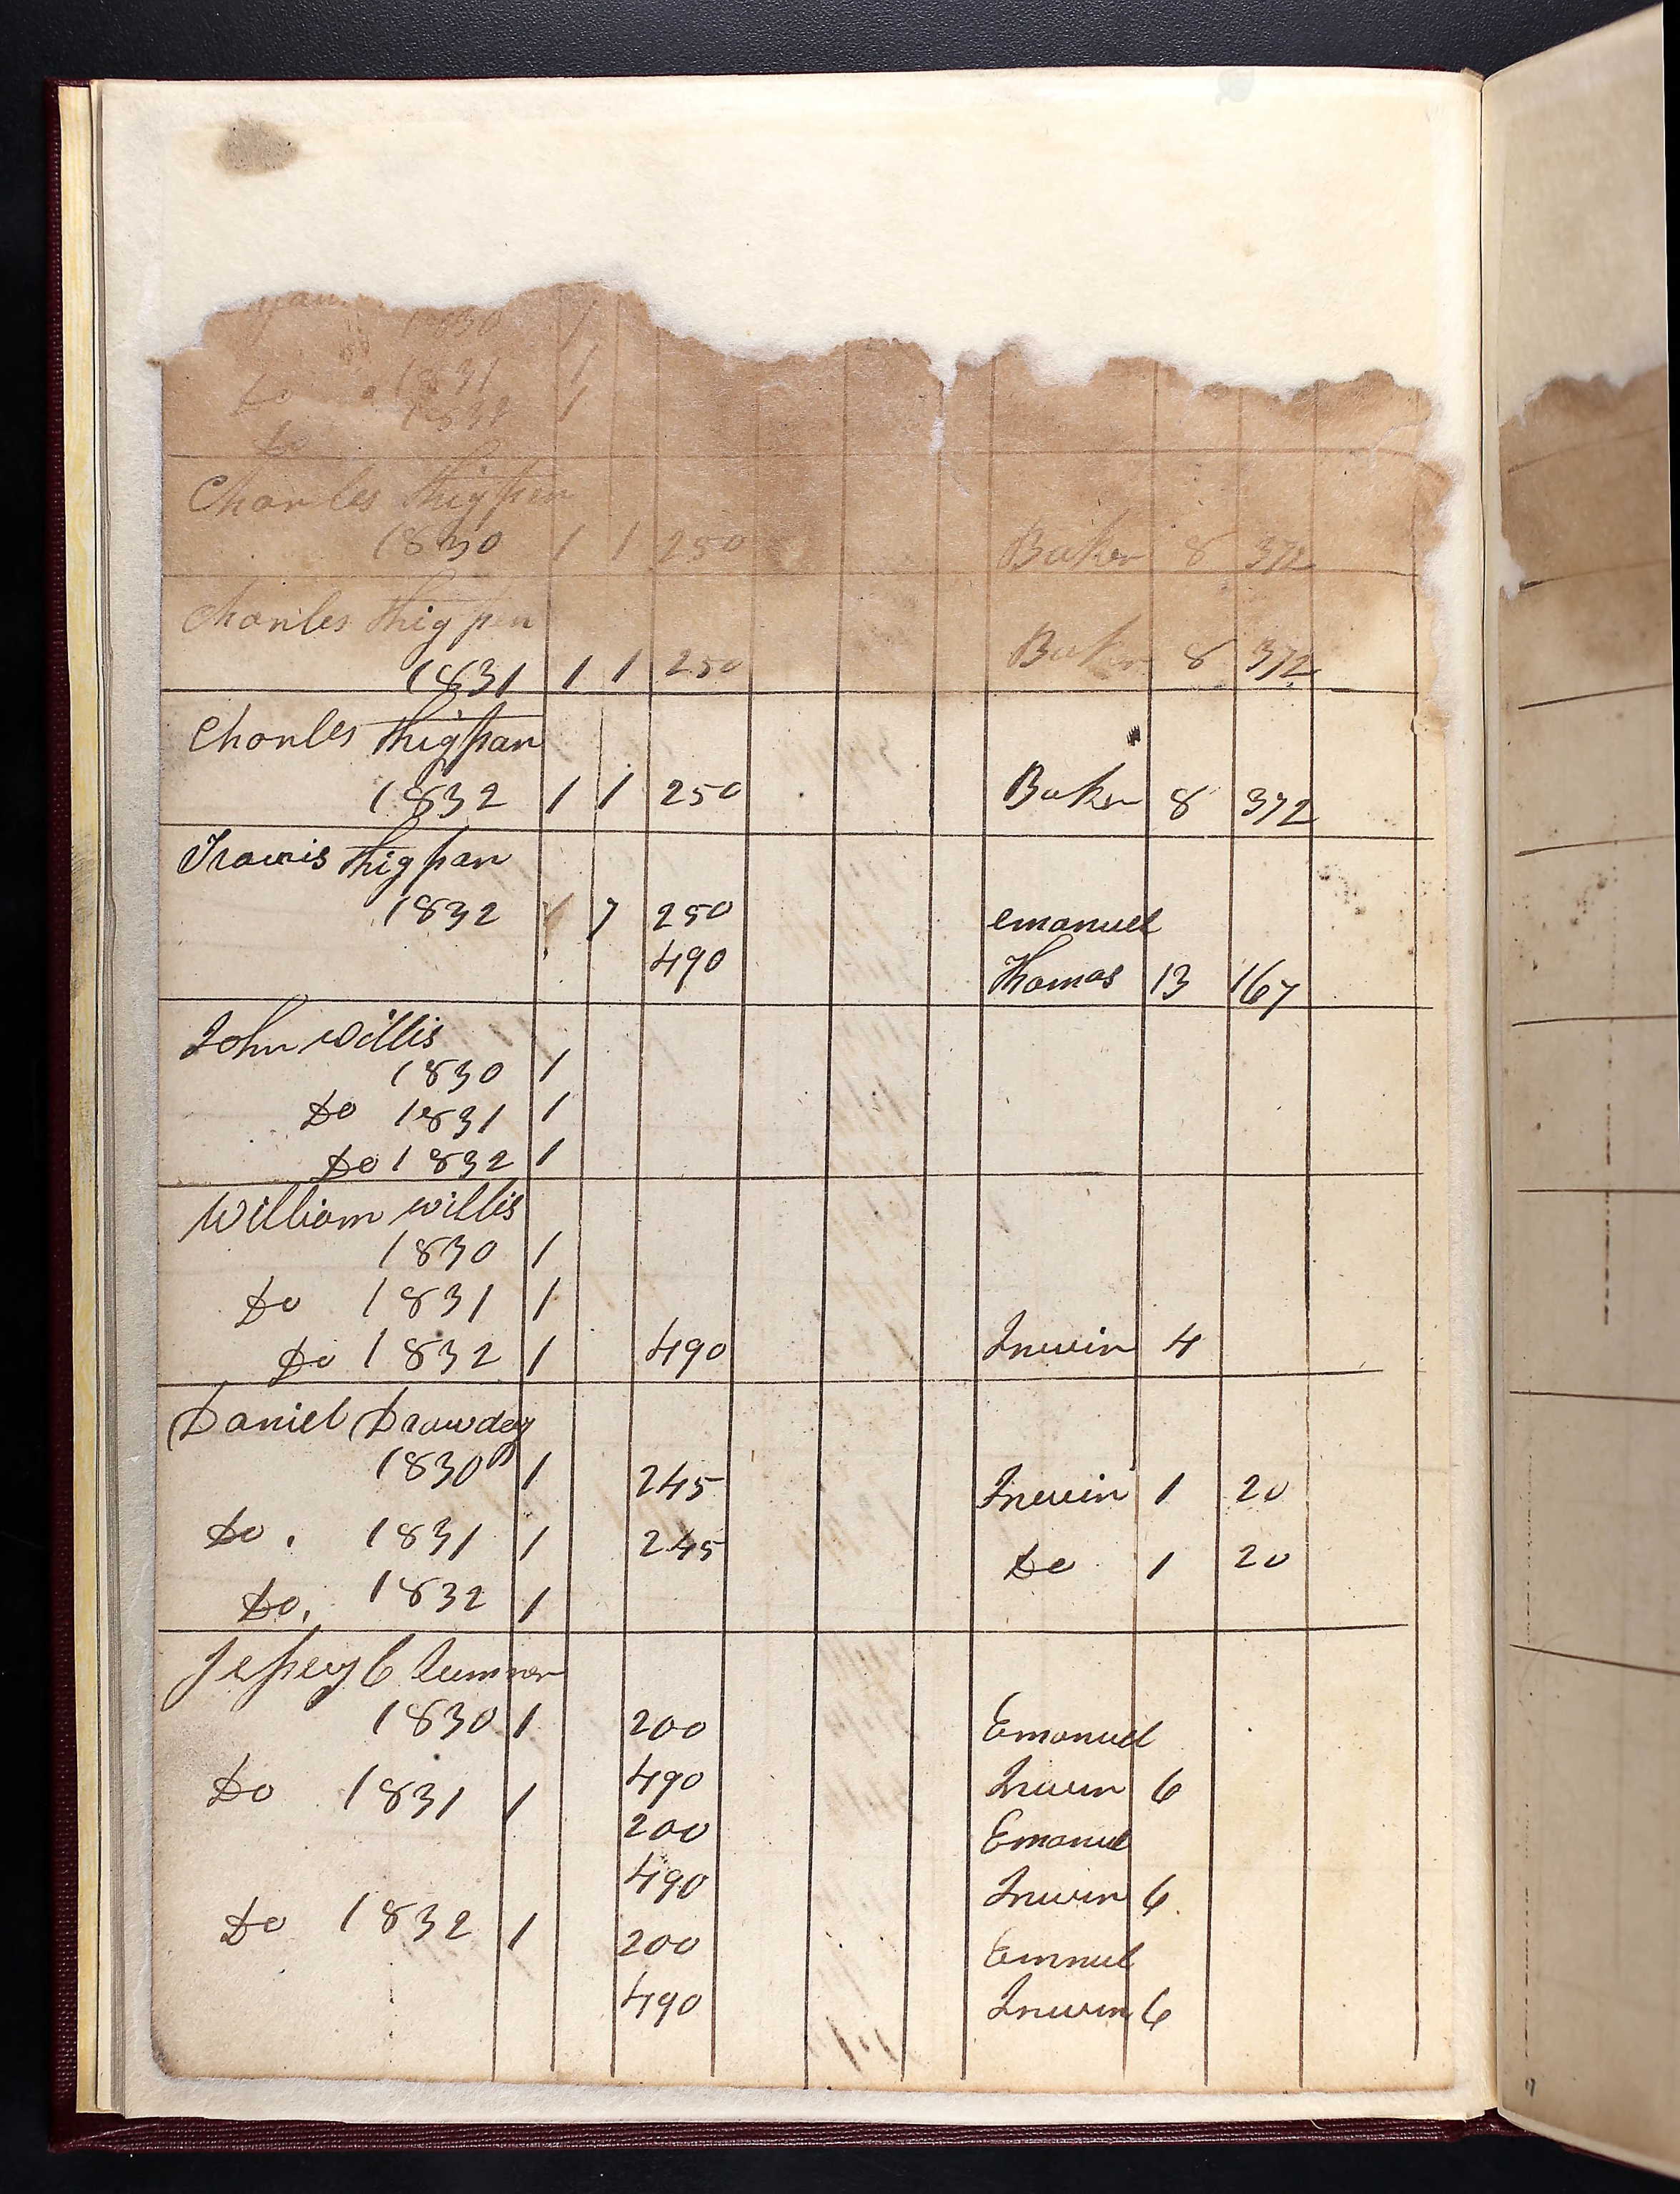 1830 1
Do 1831 1
Do 1832 1
Charles Thigpen
1830 1 1 250 Baker 8 372
Charles Thigpen
1831 1 1 250 Baker 8 372
Charles Thigpan
1832 1 1 250 Baker 8 372
Travis Thigpan
1832 7 250 emanuel
490 Thomas 13 167
John willis
1830 1
Do 1831 1
Do 1832 1
William willis
1830 1
Do 1831 1
Do 1832 1 490 Irwin 4
Daniel Drawdy
1830 1 245 Irwin 1 20
Do. 1831 1 245 Do 1 20
Do. 1832 1
1830 1 200 Emanuel
490 Irwin 6
Do 1831 1
200 Emanuel
490 Irwin 6
Do 1832 1 200 Emnuel
490 Irwin 6